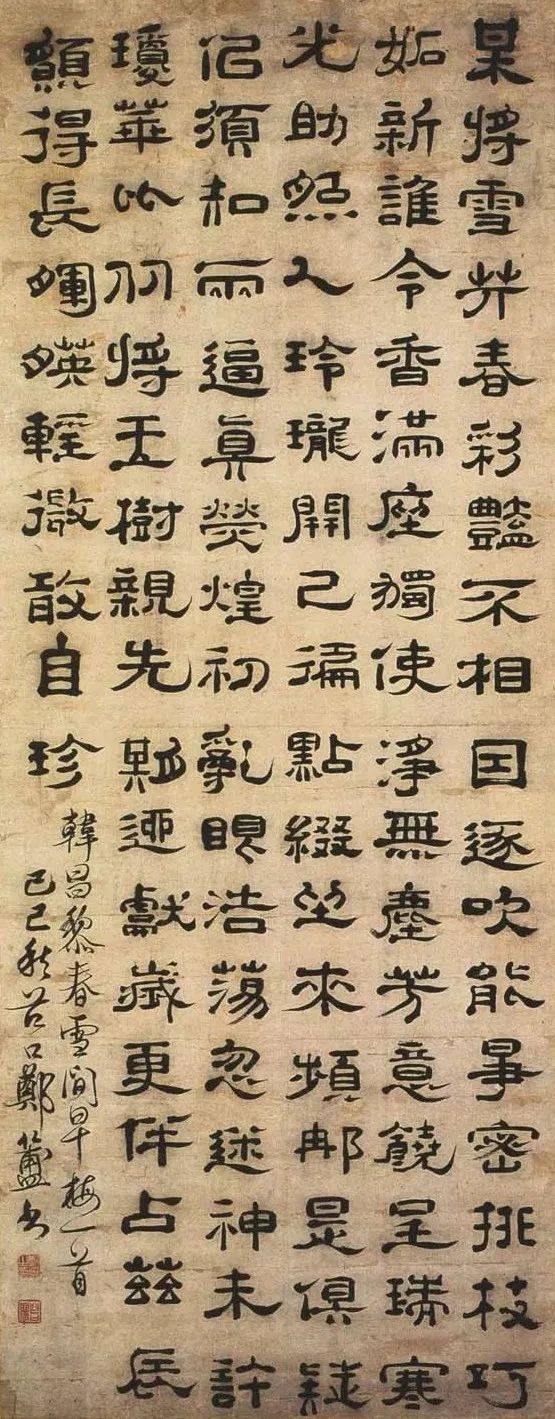 某將雪共春彩豔不相因逐吹能爭密排枝巧
妬新誰令香滿座獨使淨無塵芳意饒呈瑞寒
光助照人玲瓏開已徧點綴坐來頻那是俱疑
佀須知兩逼真熒煌初亂眼浩蕩忽迷神未許
瓊華比从將玉樹親先期迎獻歲更伴占茲辰
願得長輝暎輕微敢自珍
韓昌黎春雪間早梅一首
己巳秋谷口鄭簠書